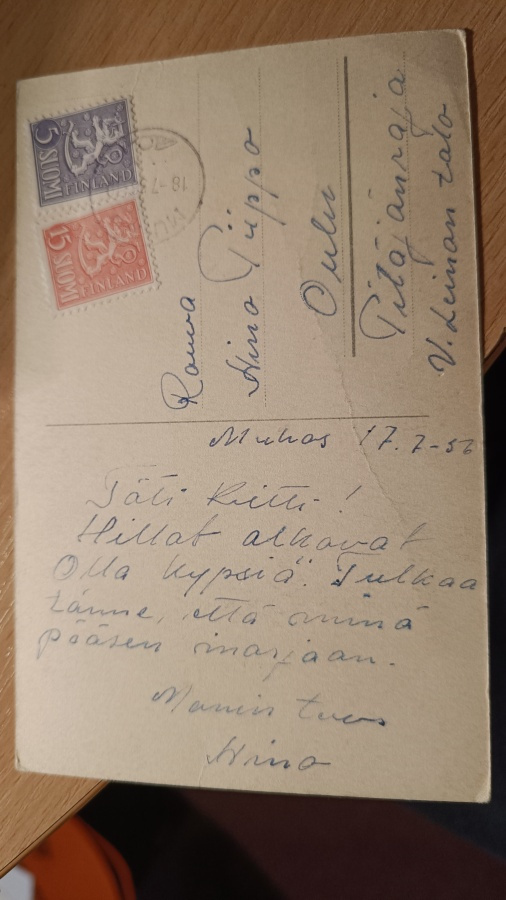 5 SUOMI
FINLAND
15 SUOMI
FINLAND
18.-7
MU
Rouva
Aino Piippo
Oulu
Pitäjänraja
V. Leinon talo
Muhos 17.7-56
Täti Kulti!
Hillat alkavat
Olla kypsiä. Tulkaa
tänne, että minä
pääsen marjaan.
Aino